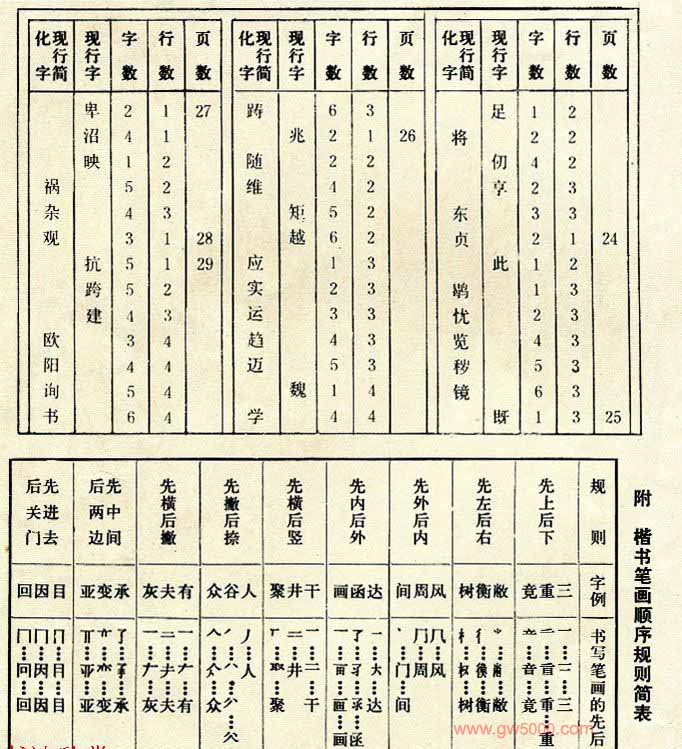 现行简化字 现行字 字数 行数 页数 现行简化字 现行字 字数 行数 页数 现行简化字 现行字 字数 行数 页数
卑 2 1 27 踌 6 3 足 1 2
沼 4 1 兆 2 1 26 将 2 2
映 1 2 随 2 2 仞 4 2
祸 5 2 维 4 2 享 2 3
杂 4 3 矩 5 2 东 3 3
观 3 1 28 越 6 2 贞 2 1 24
抗 5 1 29 应 1 3 此 1 2
跨 5 2 实 2 3 1 3
建 4 3 运 3 3 忧 2 3
欧 3 4 趋 4 3 览 4 3
阳 4 4 迈 5 3 秽 5 3
询 5 4 魏 1 4 镜 6 3
书 6 4 学 4 4 既 1 3 25
附 楷书笔画顺序规则简表
规则 先上后下 先左后右 先外后内 先内后外 先横后竖 先撇后捺 先横后撇 先中间后两边 先进去后关门
字例 三重竟 敝衡树 风周间 达函画 干井聚 人谷众 有夫灰 承变亚 目因回
书写笔画的先后
www.gw5000.com